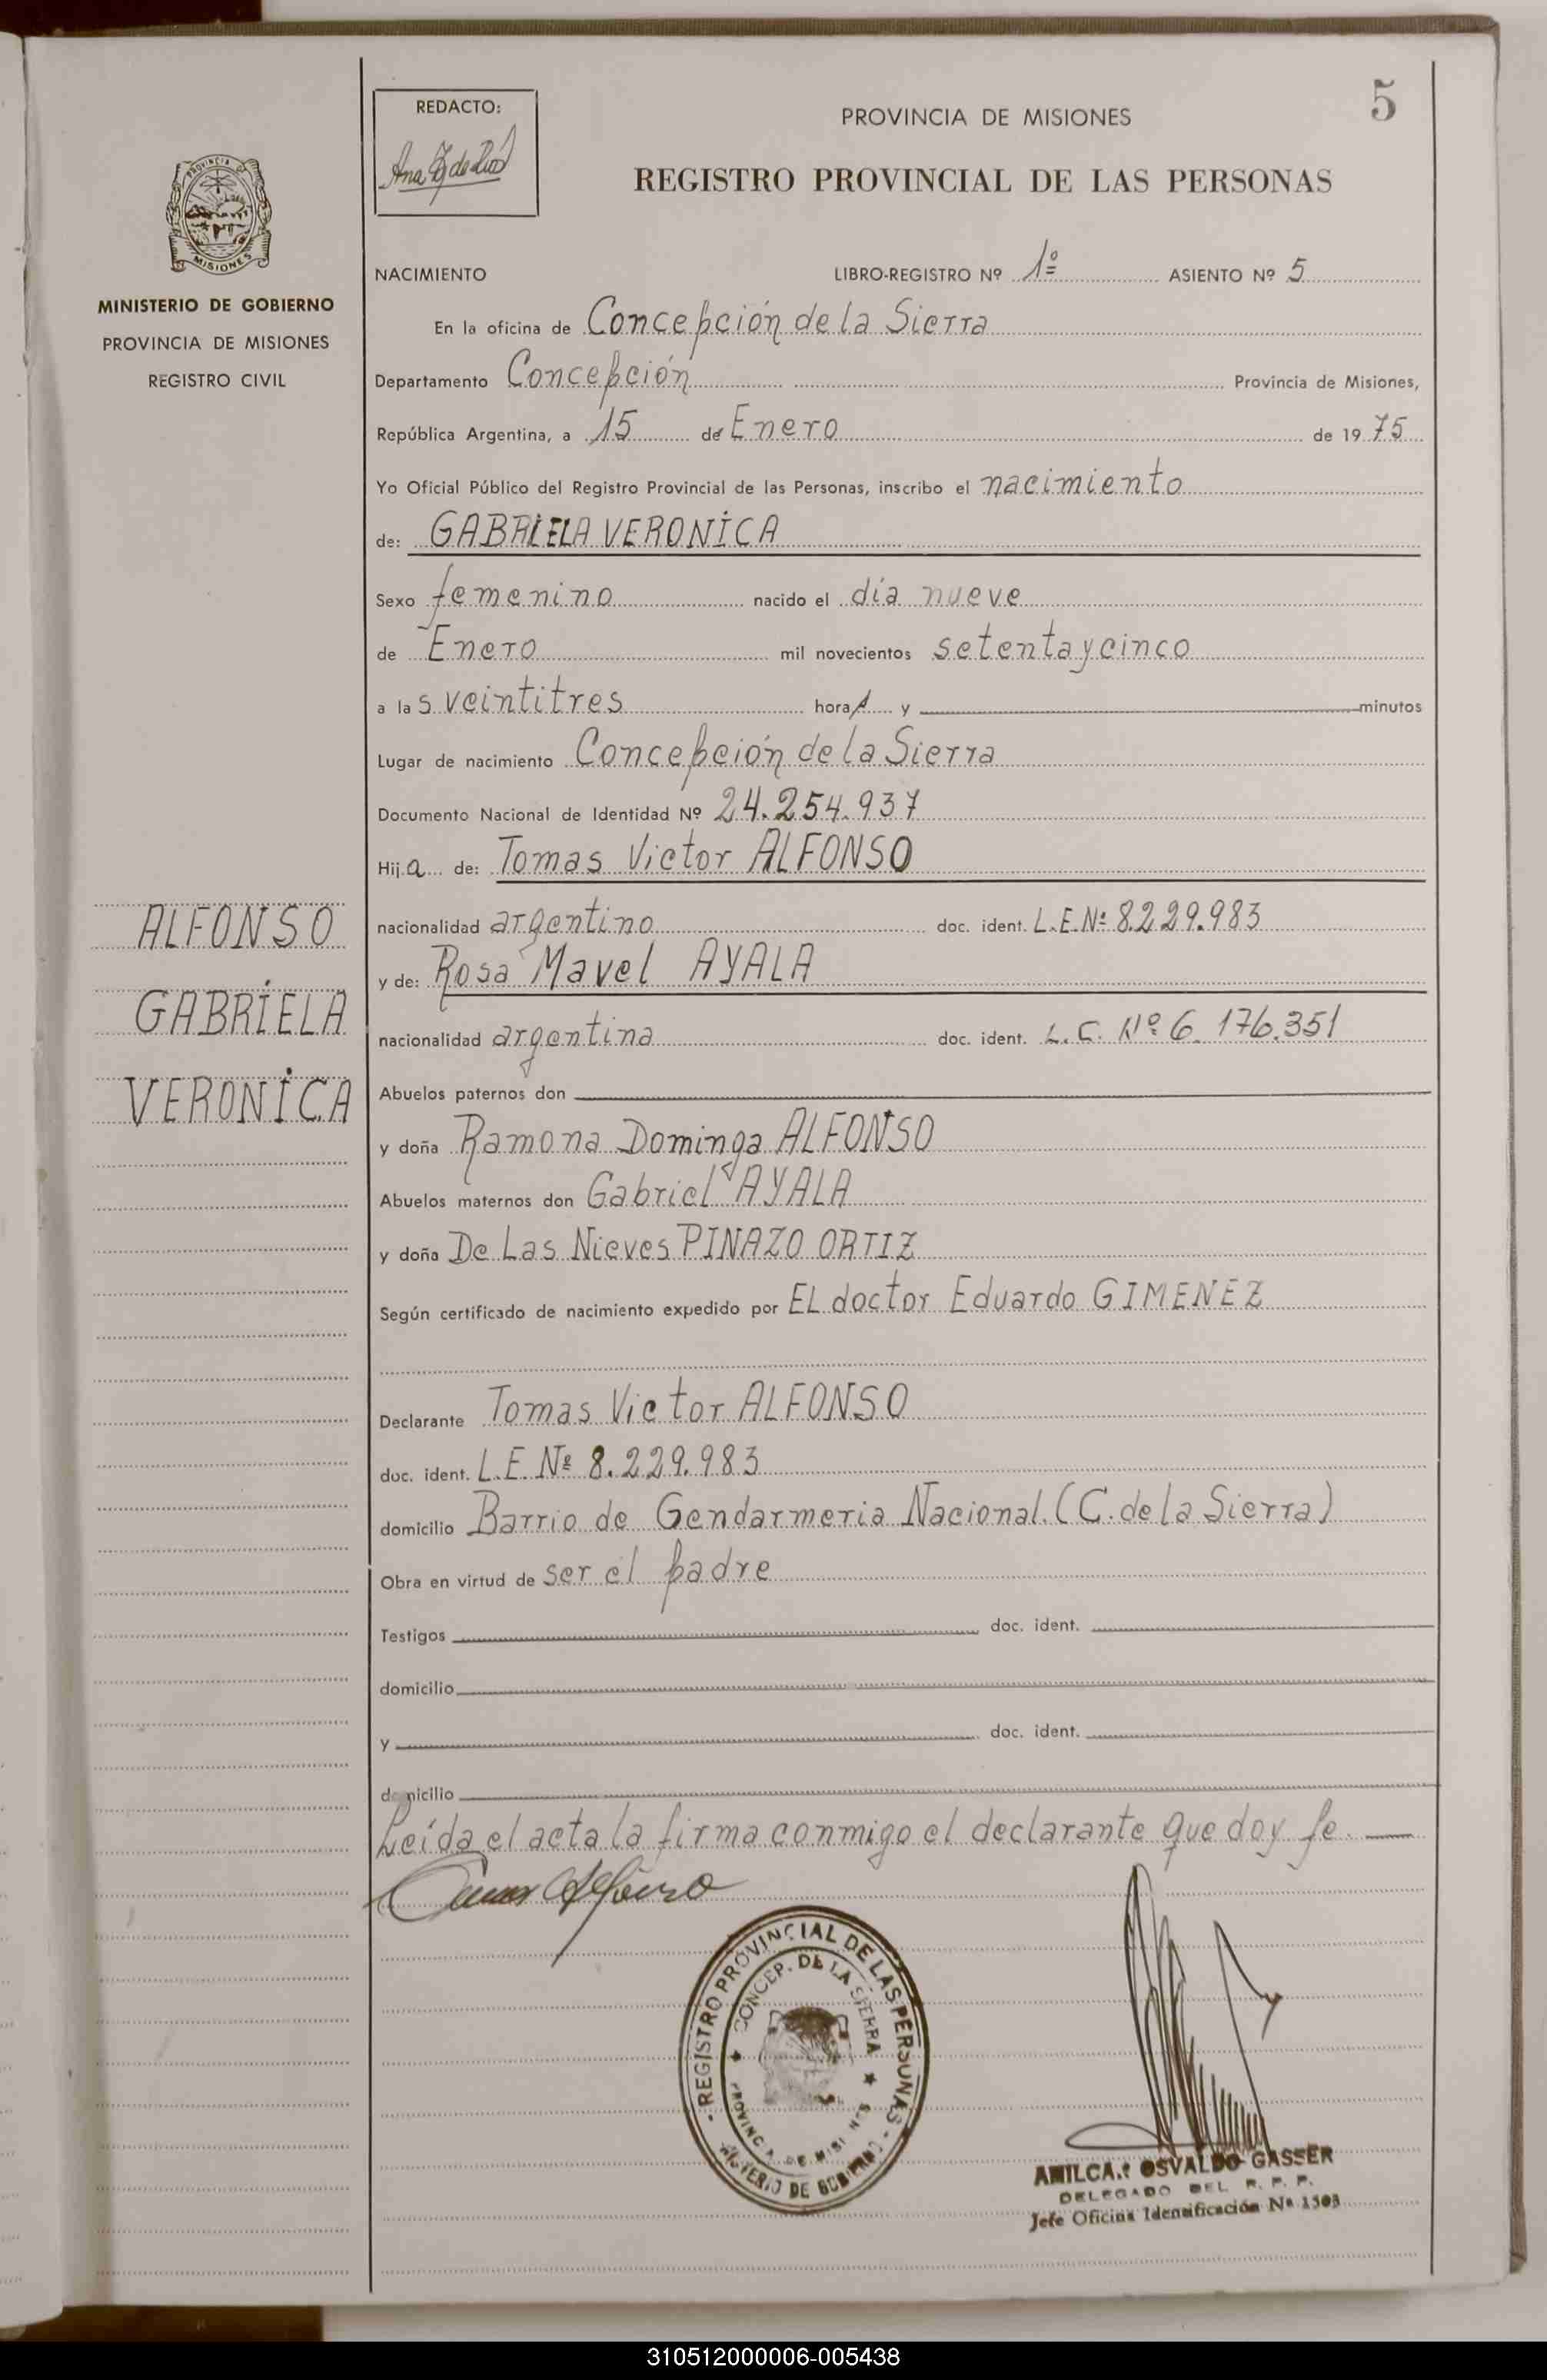 5
REDACTO:
Ana
PROVINCIA DE MISIONES
REGISTRO PROVINCIAL DE LAS PERSONAS
PROVINCIA DE
MISIONES
MINISTERIO DE GOBIERNO
PROVINCIA DE MISIONES
REGISTRO CIVIL
NACIMIENTO LIBRO-REGISTRO Nº 1º ASIENTO Nº 5
En la oficina de Concepción de la Sierra
Departamento Concepción Provincia de Misiones,
República Argentina, a 15 de Enero de 1975
Yo Oficial Público del Registro Provincial de las Personas, inscribo el nacimiento
de: GABRIELA VERONICA
Sexo femenino nacido el día nueve
de Enero mil novecientos setenta y cinco
a las veintitres horas y minutos
Lugar de nacimiento Concepción de la Sierra
Documento Nacional de Identidad Nº 24.254.937
Hija de: Tomas Victor ALFONSO
nacionalidad argentino doc. ident. L.E.Nº 8.229.983
y de: Rosa Mavel AYALA
nacionalidad argentina doc. ident. L.C. Nº 6.176.351
Abuelos paternos don
y doña Ramona Dominga ALFONSO
Abuelos maternos don Gabriel AYALA
y doña De Las Nieves PINAZO ORTIZ
Según certificado de nacimiento expedido por EL doctor Eduardo GIMENEZ
Declarante Tomas Victor ALFONSO
doc. ident. L.E. Nº 8.229.983
domicilio Barrio de Gendarmeria Nacional. (C. de la Sierra)
Obra en virtud de ser el padre
Testigos doc. ident.
domicilio
y doc. ident.
domicilio
Leída el acta la firma conmigo el declarante que doy fe.
ALFONSO
GABRIELA
VERONICA
REGISTRO PROVINCIAL DE LAS PERSONAS
CONCEP. DE LA SIERRA
PROVINCIA DE MISIONES
MINISTERIO DE GOBIERNO
AMILCAR OSVALDO GASSER
DELEGADO DEL R. P. P.
Jefe Oficina Identificación Nº 1503
310512000006-005438